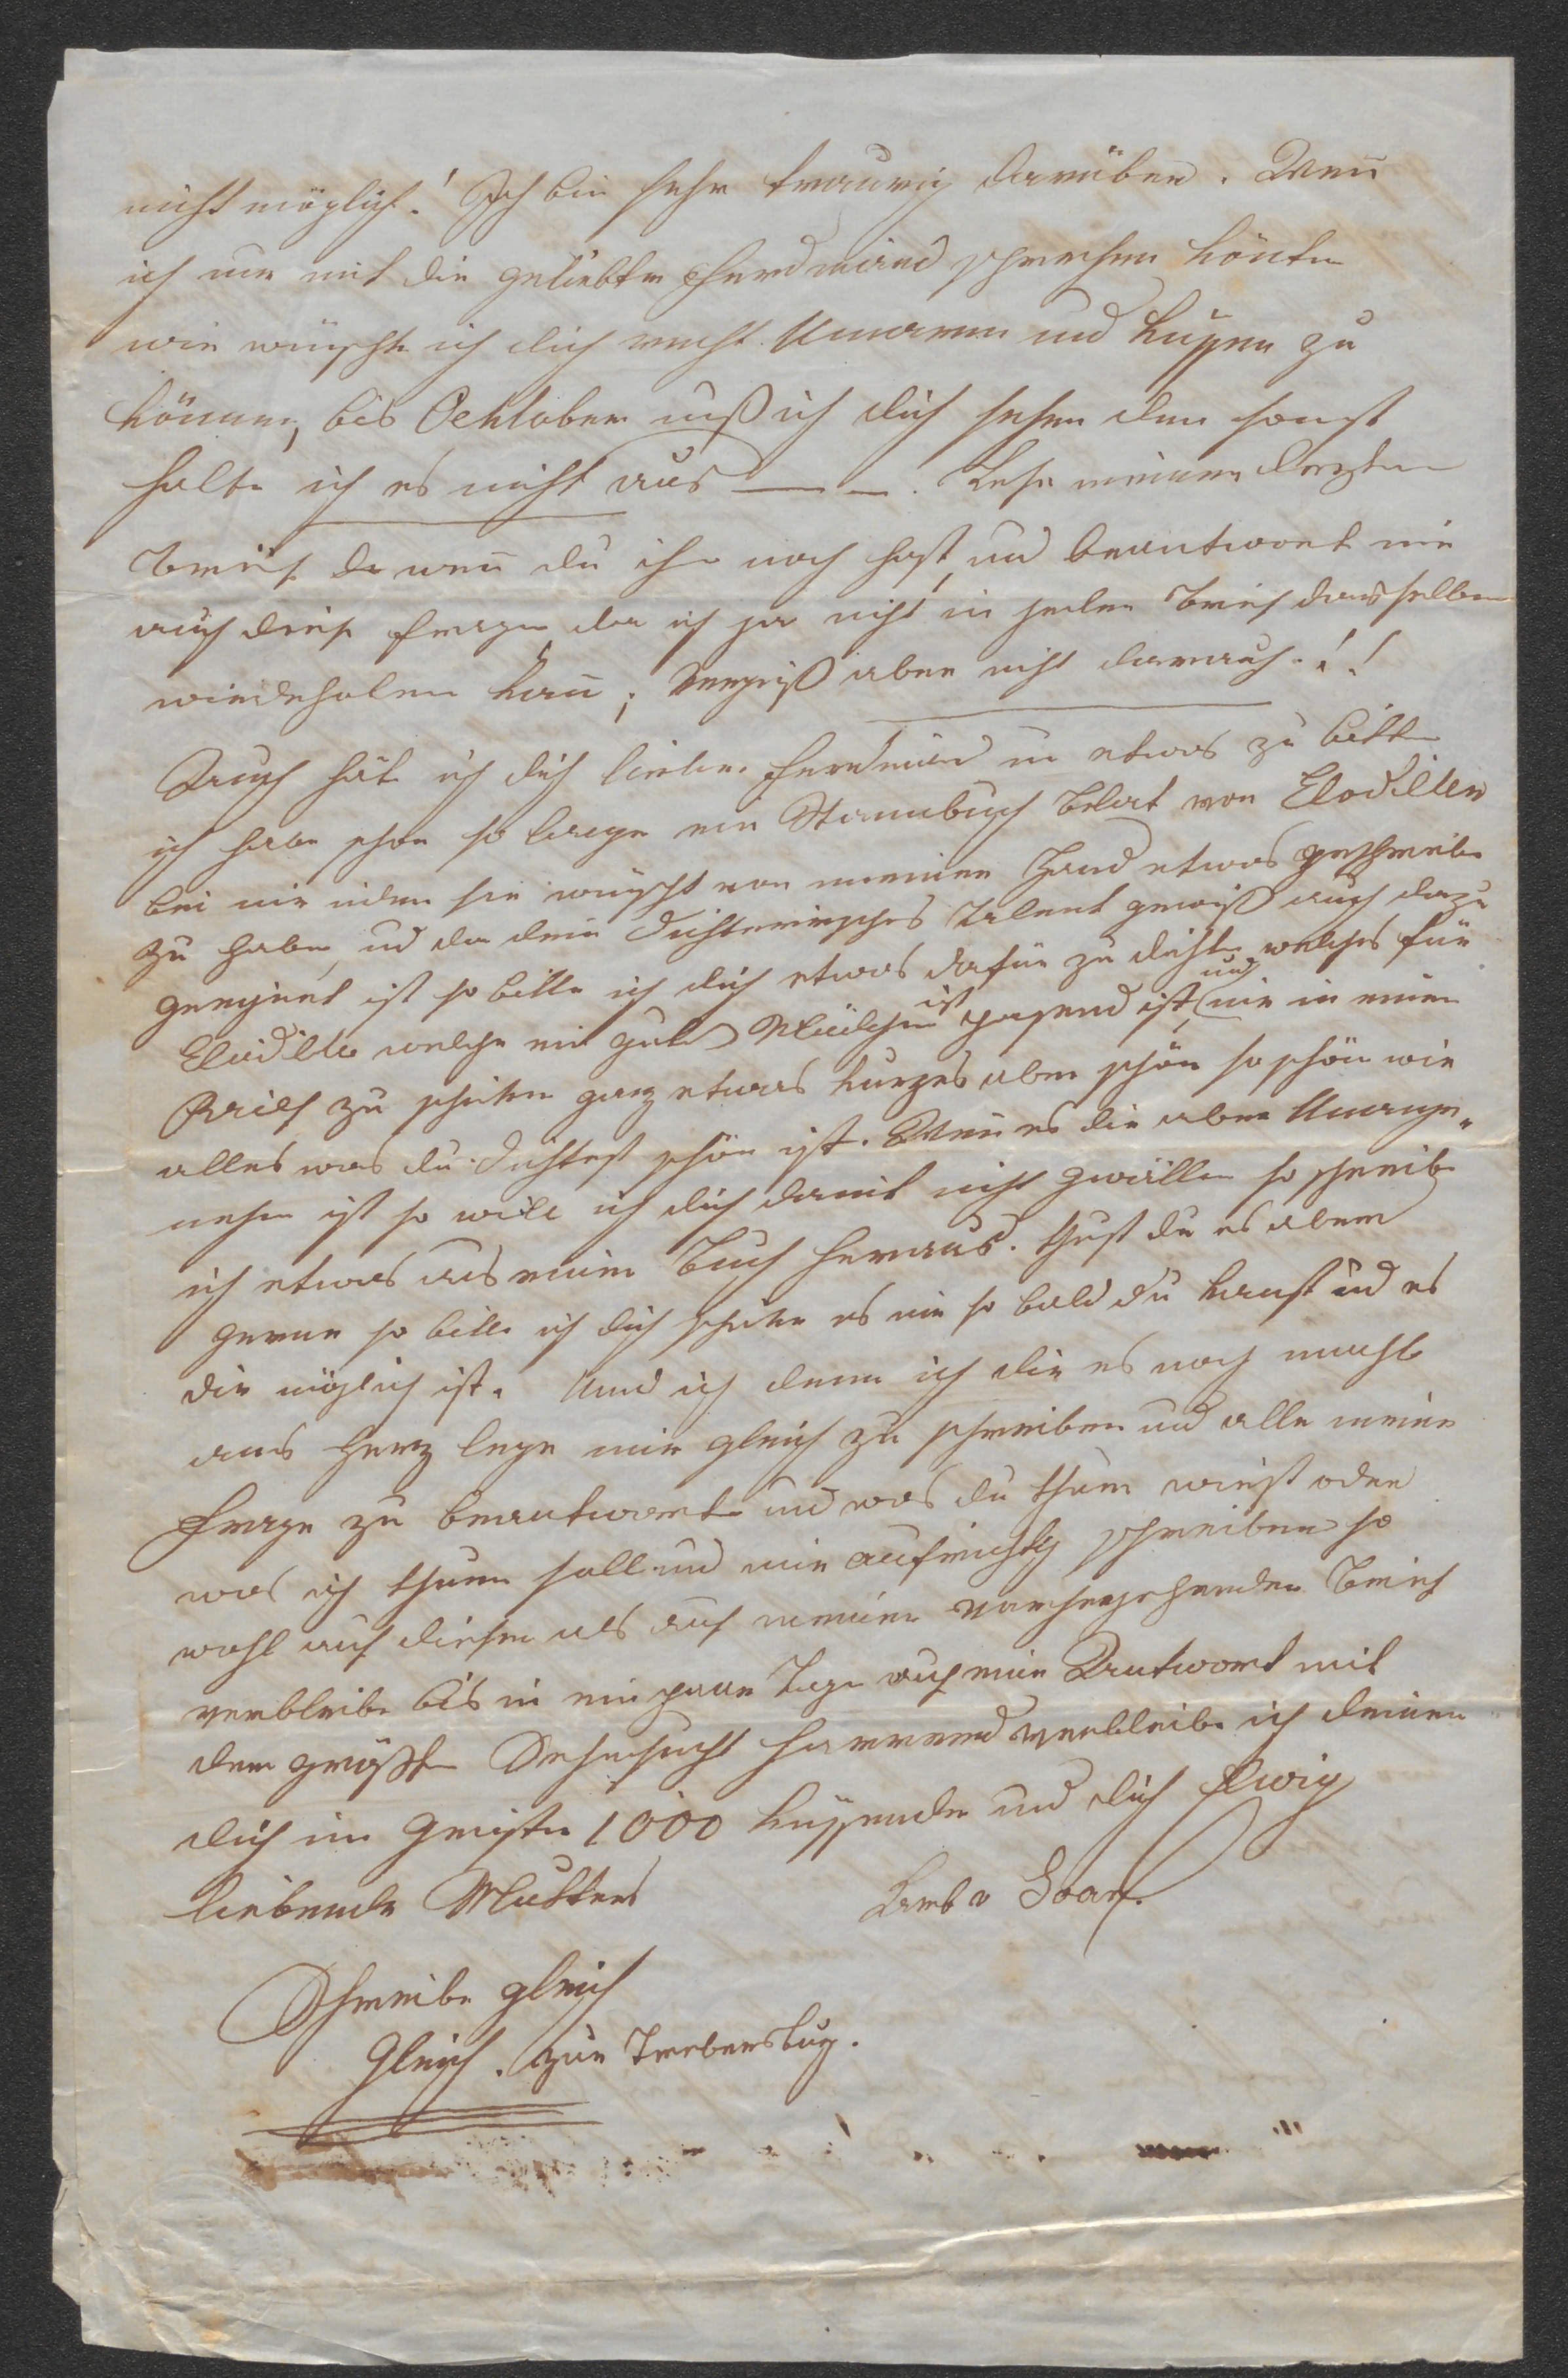 nicht möglich! Ich bin sehr traurig darüber. Wen̄
ich nur mit dir geliebter Ferdinand sprechen könte
wie wünschte ich dich recht Umarmen und küssen zu
können, bis Ocktober muß ich dich sehen den sonst
halte ich es nicht aus — — . Lese meinen letzten
Brief da wen̄ du ihn noch hast, und beantwort mir
auch diese Fragen da ich ja nicht in jeden Brief dasselbe
wiederholen kan̄; Vergiß aber nicht darauf.!!
Auch hät ich dich lieber Ferdinand um etwas zu bitten
ich habe schon so lange ein Stammbuch Blat von Clodilde
bei mir indem sie wünscht von meiner Hand etwas geschrieben
zu haben, und da dein Dichterisches Talent gewiß auch dazu
geeignet ist so bitte ich dich etwas dafür zu dichten welches für
Clodilde welche ein gutes Mädchen ist passend ist, und mir in einen
Brief zu schicken ganz etwas kurzes aber schön so schön wie
alles was du Dichtest schön ist. Wen̄ es dir aber Unange„
nehm ist so will ich dich damit nicht quällen so schreibe
ich etwas aus einem Buch heraus. thust du es aber
gerne so bitte ich dich schicke es mir so bald du kanst und es
dir möglich ist. Und ich dem ich dir es noch mahls
ans Herz lege mir gleich zu schreiben und alle meine
Frage zu beantworten und was du thun wirst oder
was ich thuen soll und mir aufrichtig schreiben so
wohl auf diesen als auf meinen vorhergehenden Brief
verbleibe bis in ein paar Tage auf eine Antwort mit
der größten Sehnsucht harrend verbleibe ich deine
dich im Geiste 1000 küssende und dich Ewig
liebende Mutter
Schreibe gleich
Gleich. zur